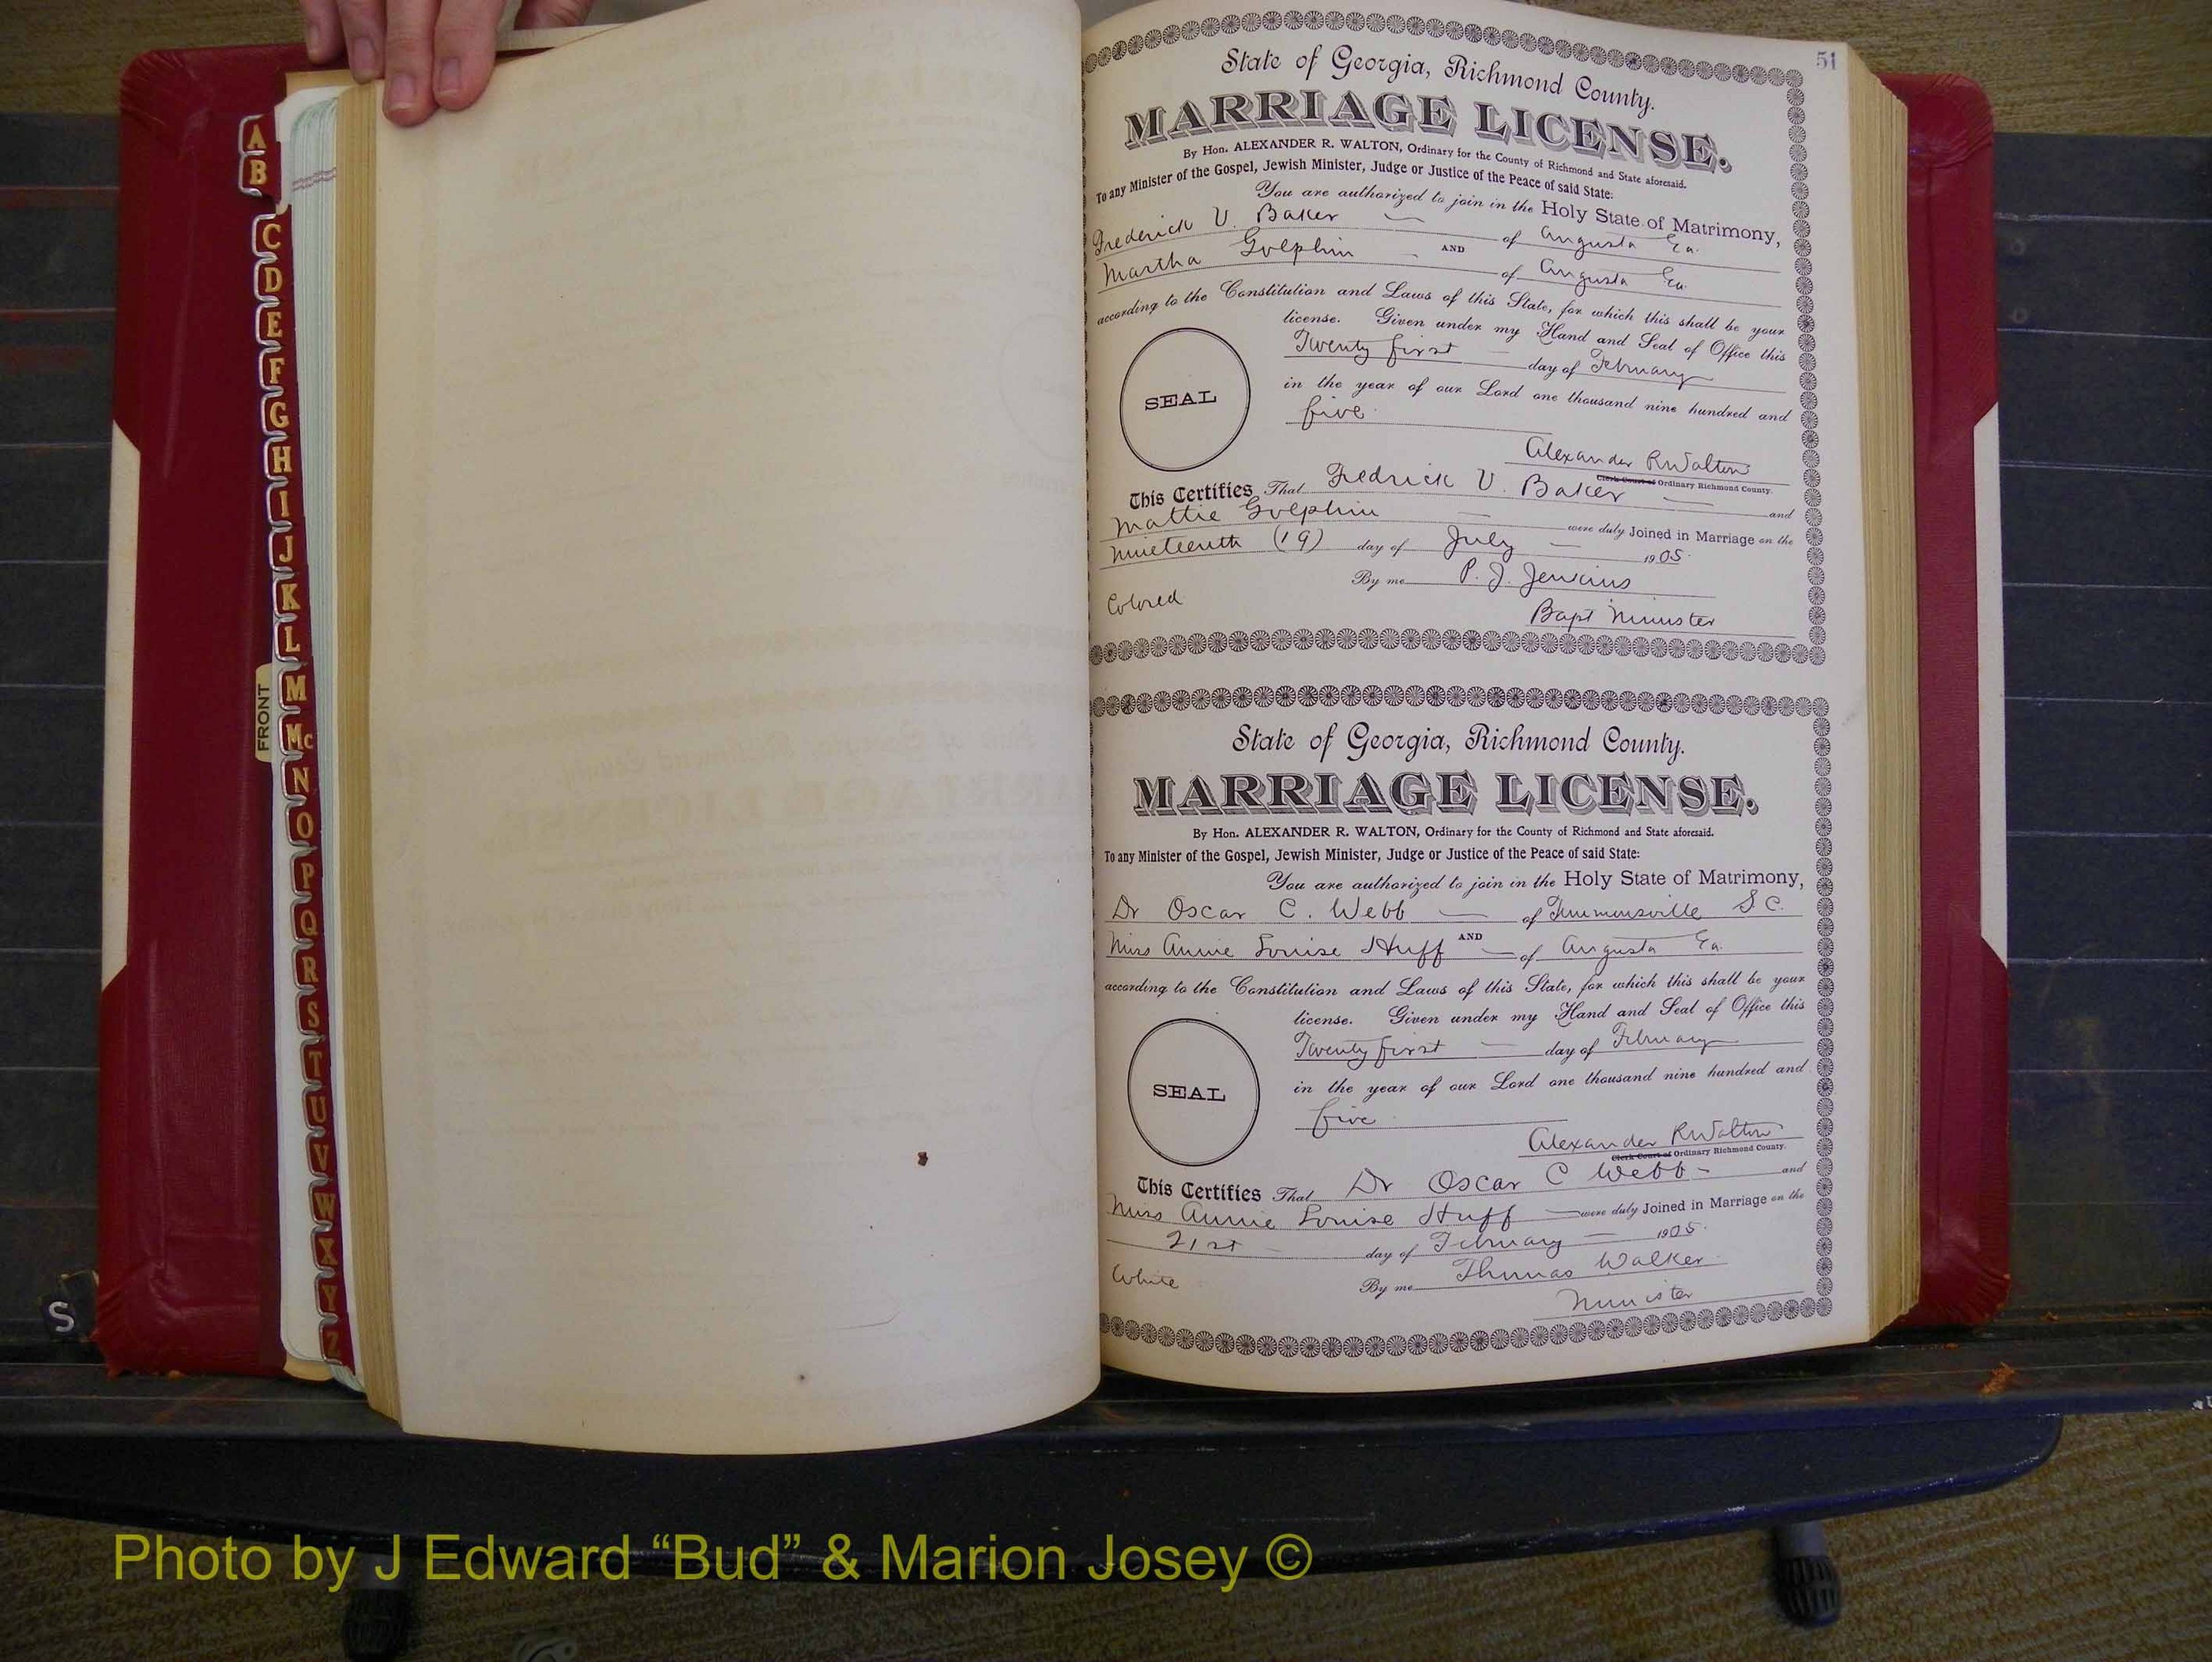 A
B
C
D
E
F
G
H
I
J
K
L
M
Mc
N
O
P
Q
R
S
T
U
V
W
X
Y
Z
FRONT
S
51
State of Georgia, Richmond County.
MARRIAGE LICENSE.
By Hon. ALEXANDER R. WALTON, Ordinary for the County of Richmond and State aforesaid.
To any Minister of the Gospel, Jewish Minister, Judge or Justice of the Peace of said State:
You are authorized to join in the Holy State of Matrimony,
Frederick V. Baker of Augusta Ga.
AND
Martha Golphin of Augusta Ga
according to the Constitution and Laws of this State, for which this shall be your
license. Given under my Hand and Seal of Office this
Twenty first day of February
in the year of our Lord one thousand nine hundred and
five
SEAL
Alexander R Walton
Clerk Court of Ordinary Richmond County.
This Certifies That Fedrick V. Baker and
Mattie Golphin were duly Joined in Marriage on the
Nineteenth (19) day of July 1905.
By me P. J. Jenkins
Colored
Bapt Minister
State of Georgia, Richmond County.
MARRIAGE LICENSE.
By Hon. ALEXANDER R. WALTON, Ordinary for the County of Richmond and State aforesaid.
To any Minister of the Gospel, Jewish Minister, Judge or Justice of the Peace of said State:
You are authorized to join in the Holy State of Matrimony,
Dr Oscar C. Webb of Timmonsville S C.
AND
Miss Annie Louise Huff of Augusta Ga.
according to the Constitution and Laws of this State, for which this shall be your
license. Given under my Hand and Seal of Office this
Twenty first day of February
in the year of our Lord one thousand nine hundred and
five
SEAL
Alexander R Walton
Clerk Court of Ordinary Richmond County.
This Certifies That Dr Oscar C Webb and
Miss Annie Louise Huff were duly Joined in Marriage on the
21st day of February 1905.
White By me Thomas Walker
Minister
Photo by J Edward “Bud” & Marion Josey ©